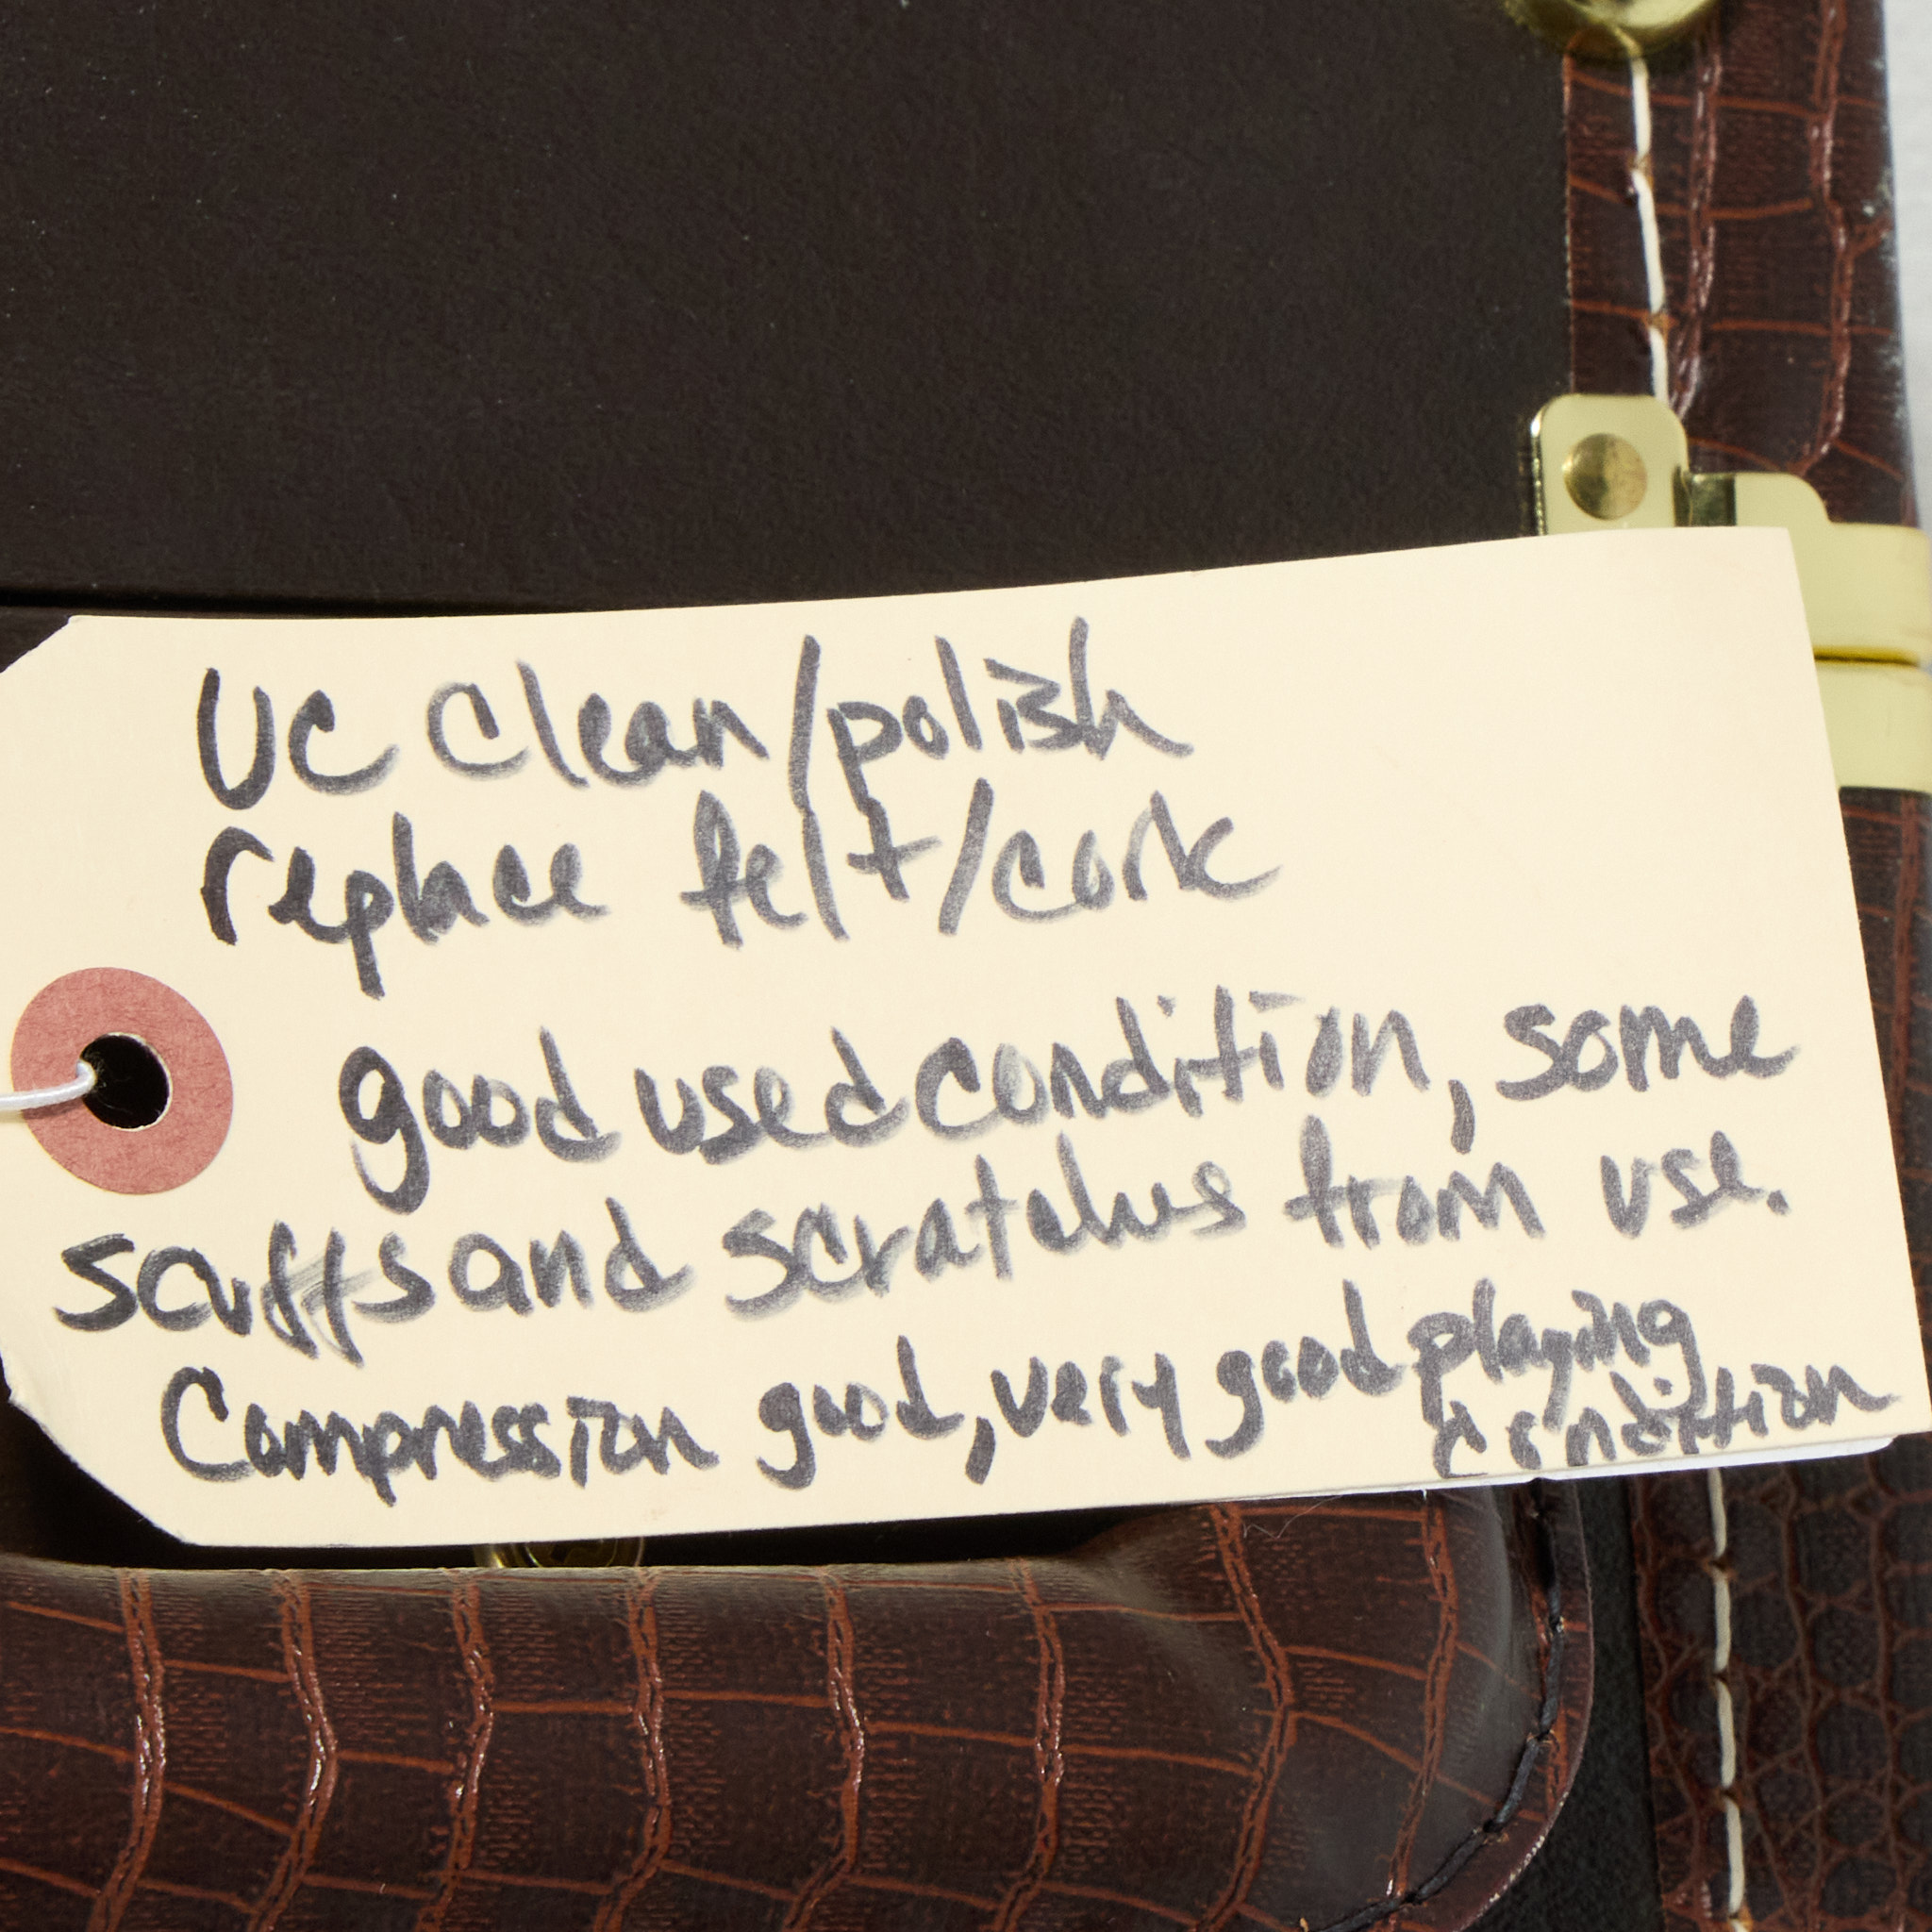 UC Clean/polish
replace felt/cork
good used condition, some
scuffs and scratches from use.
Compression good, very good playing
condition